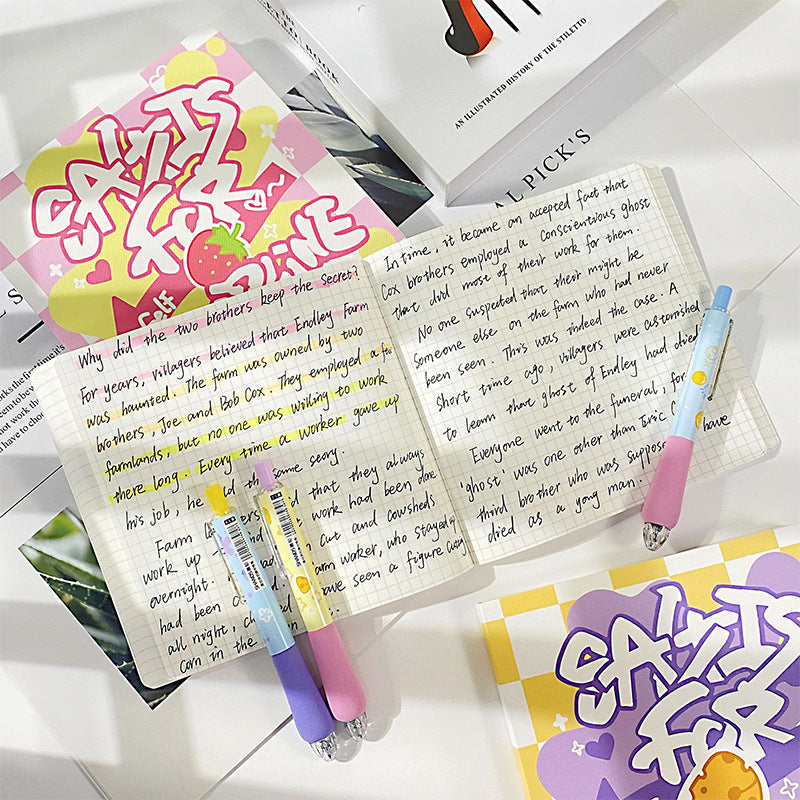 AN ILLUSTRATED HISTORY OF THE STILETTO
AL PICK'S
SAInTS
FOR
Self
Why did the two brothers keep the secret?
For years, villagers believed that Endley Farm
was haunted. The farm was owned by two
brothers, Joe and Bob Cox. They employed a few
farmlands, but no one was willing to work
there long. Every time a worker gave up
his job, he the same seory.
Farm that they always
work up work had been done
overnight. cut and cowsheds
had been worker, who stayed
all night, have seen a figure
corn in the
In time, it became an accepted fact that
Cox brothers employed a conscientious ghost
that did most of their work for them.
No one suspected that their might be
someone else on the farm who had never
been seen. This was indeed the case. A
short time ago, villagers were astonished
to learn that ghost of Endley had died
Everyone went to the funeral, for
'ghost' was one other than Eric have
third brother who was suppose
died as a yong man.
SAInTS
FOR